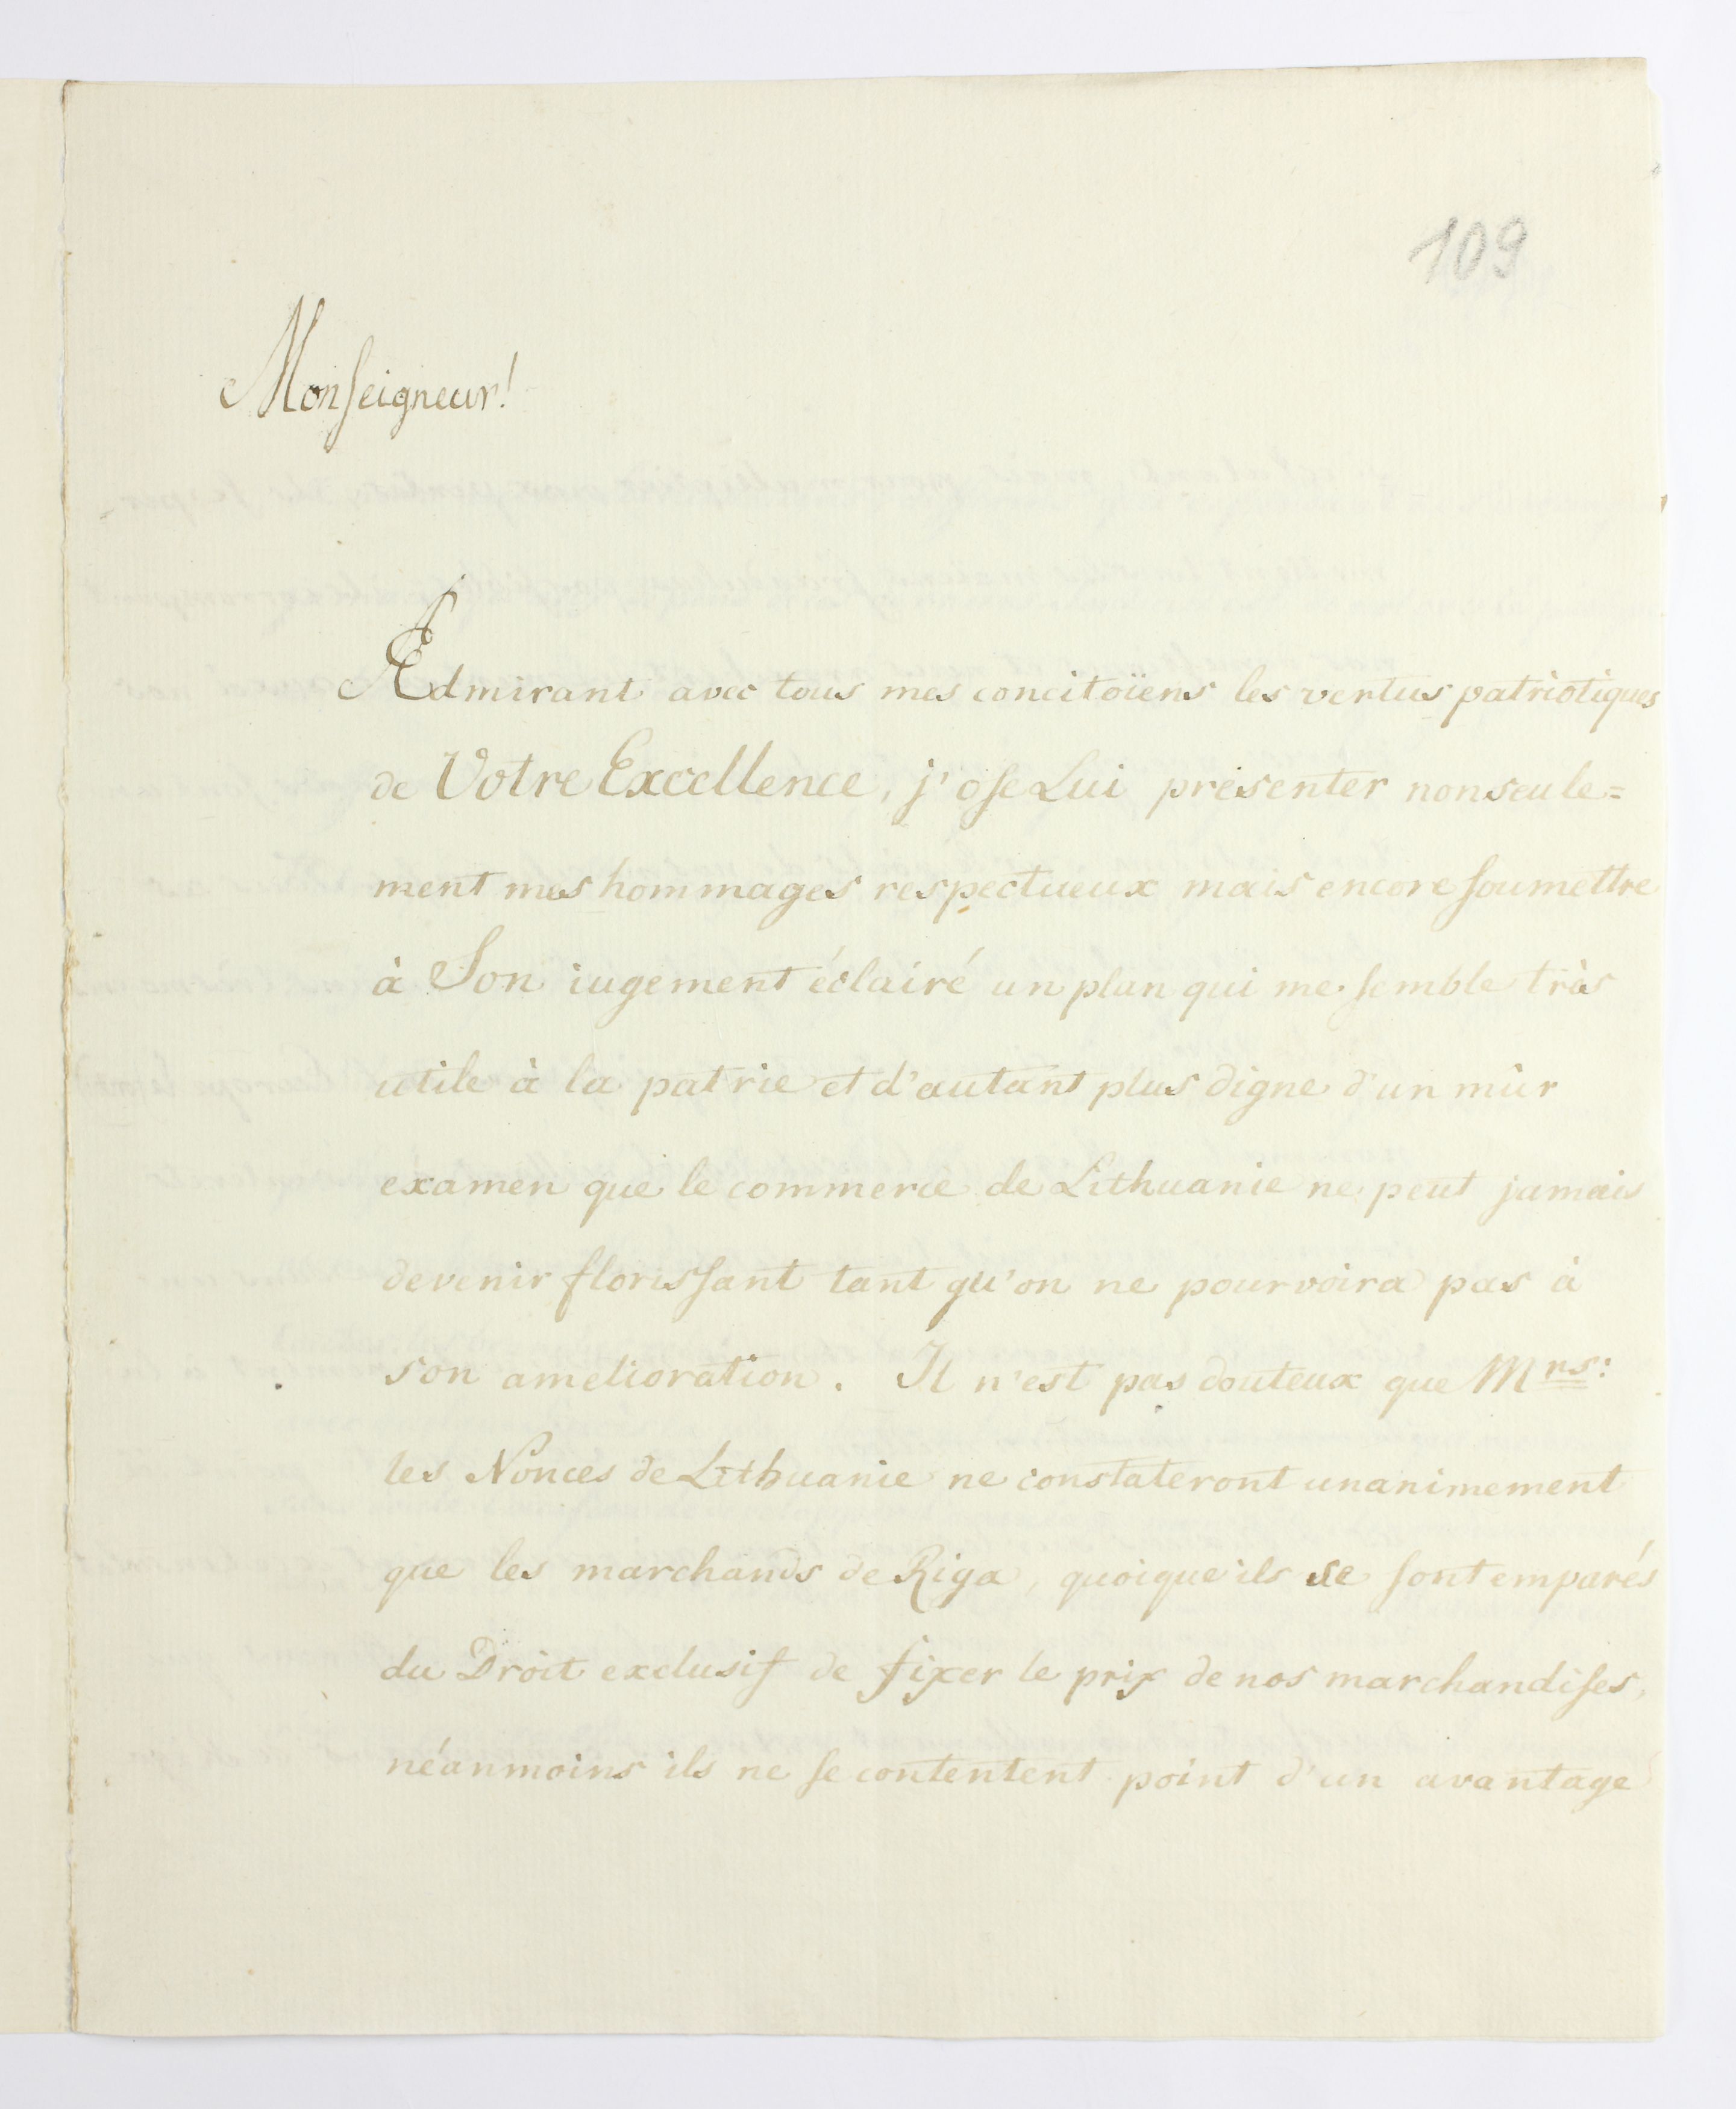 109
Monseigneur!
Admirant avec tous mes concitoïens les vertus patriotiques
de Votre Excellence, j'ose Lui présenter nonseule=
ment mes hommages respectueux mais encore soumettre
à Son iugement éclairé un plan qui me semble très
utile à la patrie et d'autant plus digne d'un mûr
examen que le commerce de Lithuanie ne peut jamais
devenir florissant tant qu'on ne pourvoira pas à
son amelioration. Il n'est pas douteux que Mrs:
les Nonces de Lithuanie ne constateront unanimement
que les marchands de Riga, quoique ils se sont emparés
du Droit exclusif de fixer le prix de nos marchandises,
néanmoins ils ne se contentent point d'un avantage